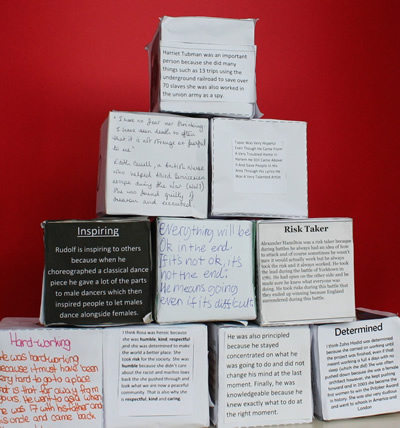 Harriet Tubman was an important
person because she did many
things such as 13 trips using the
underground railroad to save over
70 slaves she was also worked in
the union army as a spy.
"I have no fear nor shrinking
I have seen death so often
that it is not strange or fearful
to me"
Edith Cavell, a British nurse
who helped allied servicemen
escape during the war (WW1)
She was found guilty of
treason and executed.
Tupac Was Very Hopeful
Even Though He Came From
A Very Troubled Home In
Harlem He Still Came Above
It And Gave People In His
Area Through His Lyrics He
Was A Very Talented Artist
Inspiring
Rudolf is inspiring to others
because when he
choreographed a classical dance
piece he gave a lot of the parts
to male dancers which then
inspired people to let males
dance alongside females.
Everything will be
Ok in the end.
If it's not ok, it's
not the end.
He means going
even if it's difficult.
Risk Taker
Alexander Hamilton was a risk taker because
during battles he always had an idea of how
to attack and of course sometimes he wasn't
sure it would actually work but he always
took the risk and it always worked. He took
the lead during the battle of Yorktown in
1781. He had spies on the other side and he
made sure he knew what everyone was
doing. He took risks during this battle that
they ended up winning because England
surrendered during this battle.
Hard-working
He was hard-working
because it must have been
very hard to go to a place
that is that far away from
He went to asia when
he was 17 with his father and
his uncle and came back
I think Rosa was heroic because
she was humble, kind, respectful
and she was determined to make
the world a better place. She
took risk for the society. She was
humble because she didn't care
about the racist and machos laws
back the she pushed through and
look what we are now a peaceful
community. That is also why she
is respectful, kind and caring.
He was also principled
because he stayed
concentrated on what he
was going to do and did
not change his mind at the
last moment. Finally, he was
knowledgeable because he
knew exactly what to do at
the right moment.
Determined
I think Zaha Hadid was determined
because she carried on working until
the project was finished, even if that
meant working a full 4 days with no
sleep (which she did). She was often
pushed down because she was a female
architect however, she kept pushing
forward and in 2003 she became the
first woman to win the Pritzker Award
in history. She was also very studious
and went to schools in America and
London